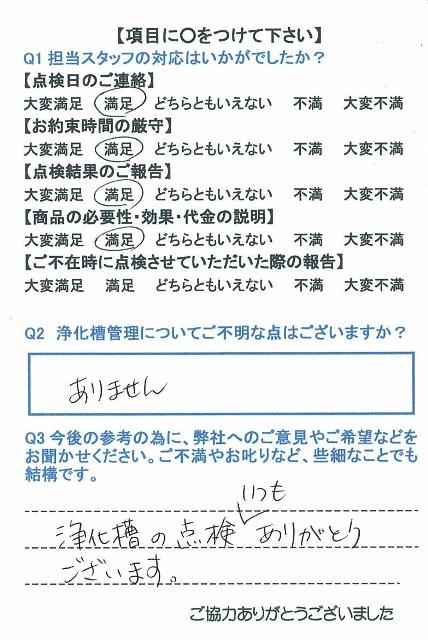 【項目に〇をつけて下さい】
Q1 担当スタッフの対応はいかがでしたか？
【点検日のご連絡】
大変満足 満足 どちらともいえない 不満 大変不満
【お約束時間の厳守】
大変満足 満足 どちらともいえない 不満 大変不満
【点検結果のご報告】
大変満足 満足 どちらともいえない 不満 大変不満
【商品の必要性・効果・代金の説明】
大変満足 満足 どちらともいえない 不満 大変不満
【ご不在時に点検させていただいた際の報告】
大変満足 満足 どちらともいえない 不満 大変不満
Q2 浄化槽管理についてご不明な点はございますか？
ありません
Q3 今後の参考の為に、弊社へのご意見やご希望などを
お聞かせください。ご不満やお叱りなど、些細なことでも
結構です。
いつも
浄化槽の点検 ありがとう
ございます。
ご協力ありがとうございました